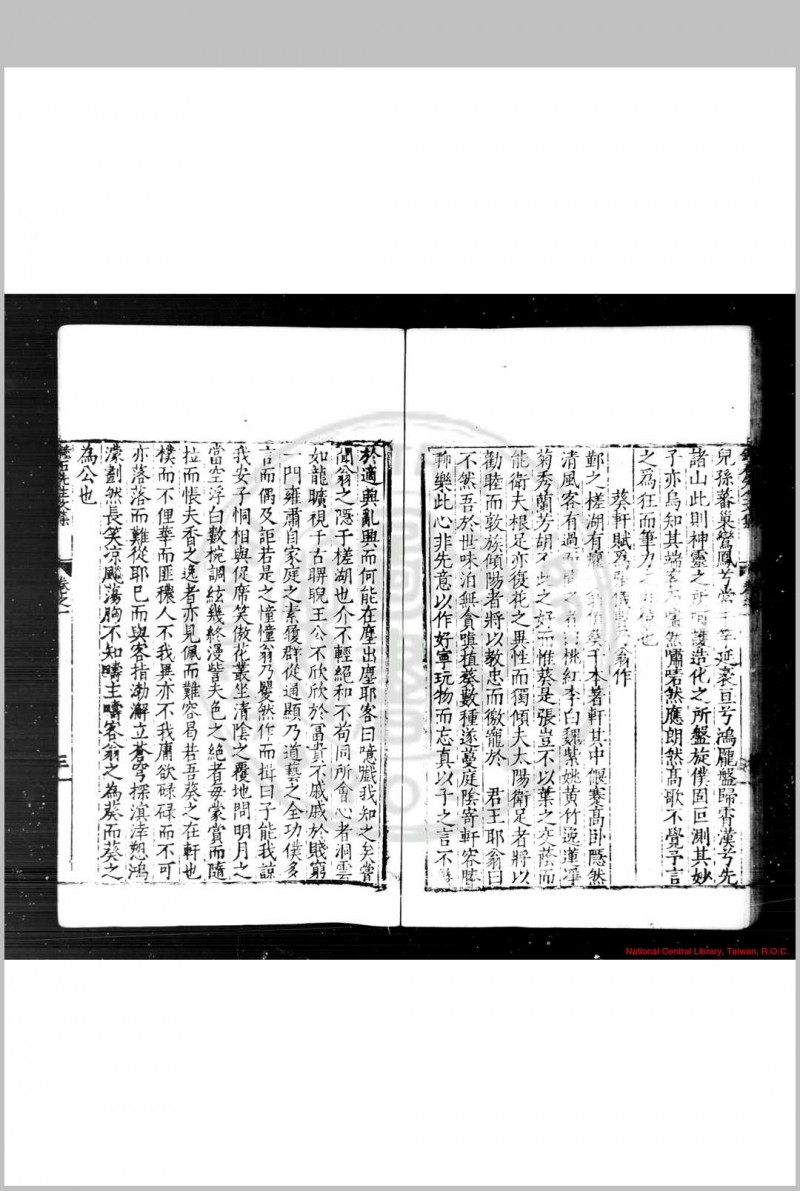 兒孫蕃巢鸞鳳兮當千年延袤亘兮鴻龎盤歸霄漢兮先
諸山此則神靈之所護造化之所盤旋僕固叵測其妙
子亦烏知其端客乃然嘯喈然應朗然高歌不覺予言
之為狂而筆力之也
葵軒賦為翁作
鄞之槎湖有翁葵千本著軒其中偃蹇高臥隱然
清風客有過而者曰桃紅李白魏紫姚黃竹逸蓮淨
菊秀蘭芳胡不此之好而惟葵是張豈不以葉之交蔭而
能衛夫根足亦復花之異性而獨傾夫太陽衛足者將以
勸睦而敦族傾陽者將以教忠而徼寵於 君王耶翁曰
不然吾於世味泊無貪嗜植葵數種遂蔓庭陰寄軒容膝
聊樂此心非先意以作好寧玩物而忘真以子之言不
於適興亂興而何能在塵出塵耶客曰噫戲我知之矣嘗
聞翁之隱于槎湖也介不輕絕和不苟同所會心者洞雲
如龍曠視千古睥睨王公不欣欣於冨貴不戚戚於賤窮
一門雍肅自家庭之素履群從通顯乃道藝之全功僕多
言而偶及詎若是之憧憧翁乃嬰然作而揖曰子能我諒
我安子恫相與促席笑傲花叢坐清陰之覆地問明月之
當空浮白數椀調絃幾終漫訾夫色之絕者毎蒙賞而隨
拉而悵夫香之逸者亦見佩而難容曷若吾葵之在軒也
樸而不俚華而匪穠人不我異亦不我庸欲碌碌而不可
亦落落而難從耶已而與客指渤澥立蒼穹探滇涬怨鴻
濛劃然長笑凉飈蕩胸不知疇主疇客翁之為葵而葵之
為公也
卷之一
National Central Library, Taiwan, R.O.C.